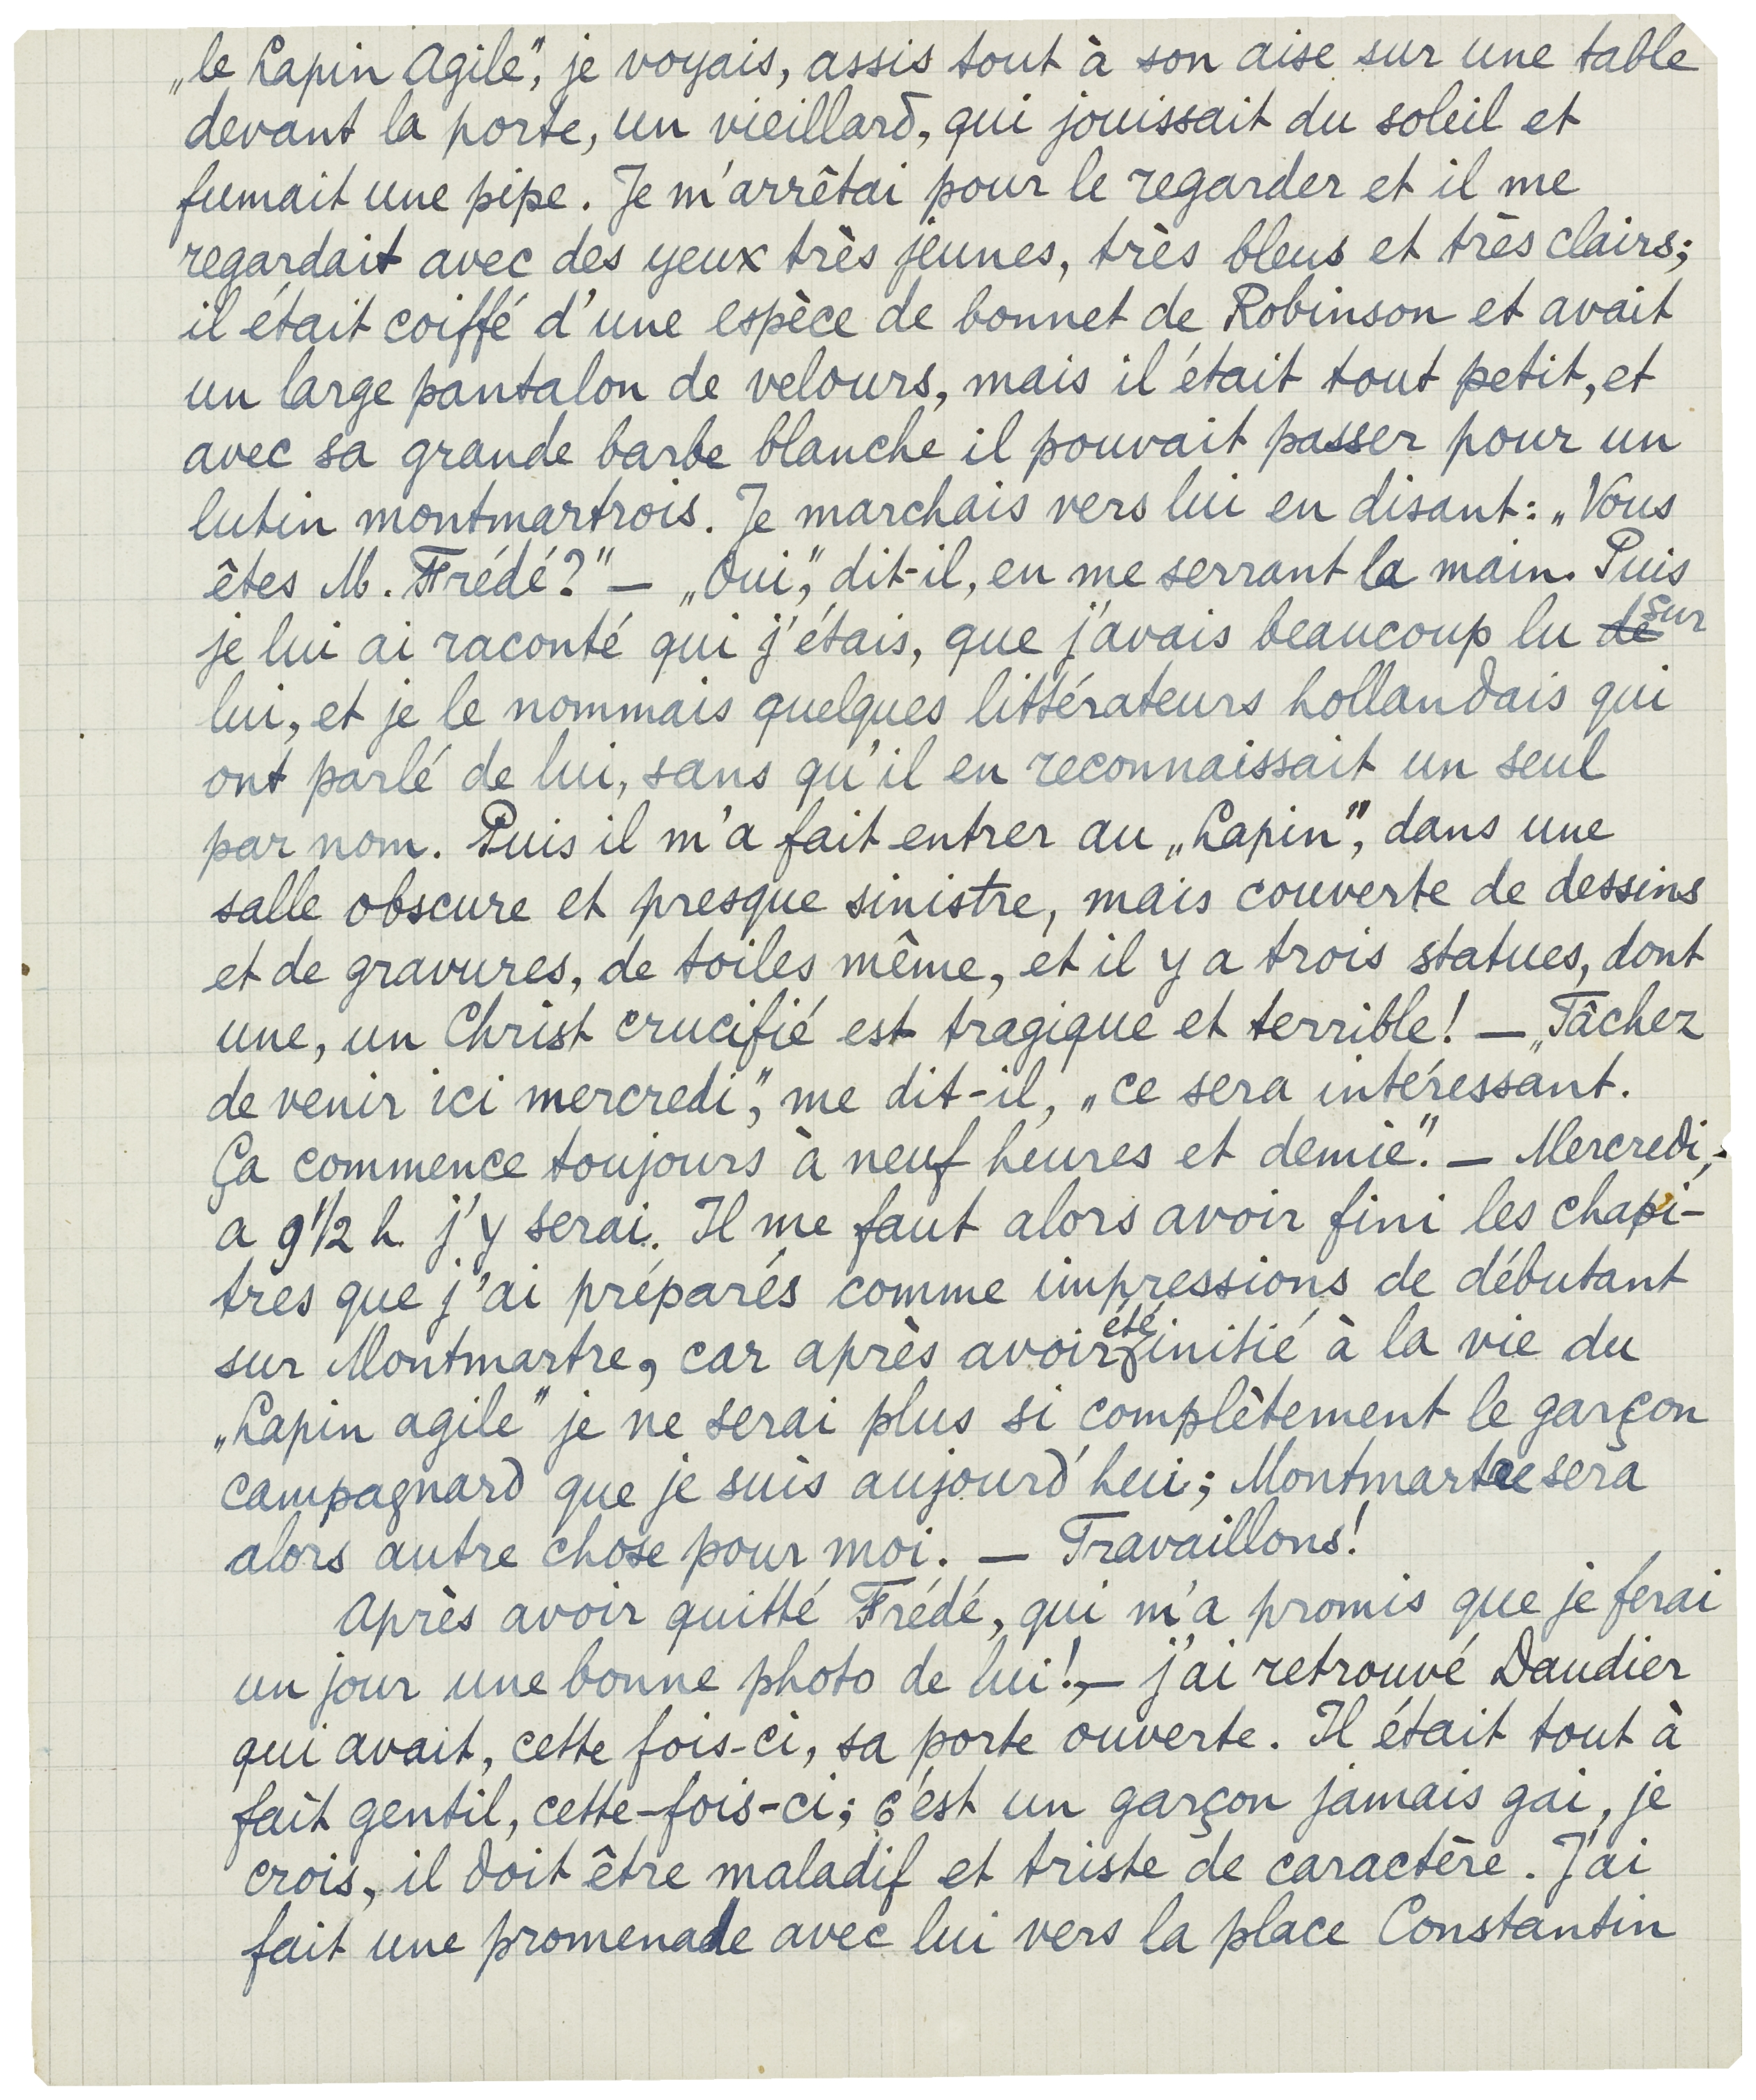 „le Lapin Agile”, je voyais, assis tout à son aise sur une table
devant la porte, un vieillard, qui jouissait du soleil et
fumait une pipe. Je m'arrêtai pour le regarder et il me
regardait avec des yeux très jeunes, très bleus et très clairs;
il était coiffé d'une espèce de bonnet de Robinson et avait
un large pantalon de velours, mais il était tout petit, et
avec sa grande barbe blanche il pouvait passer pour un
lutin montmartrois. Je marchais vers lui en disant: „Vous
êtes M. Frédé?” — „Oui,” dit-il, en me serrant la main. Puis
je lui ai raconté qui j'étais, que j'avais beaucoup lu de sur
lui, et je le nommais quelques littérateurs hollandais qui
ont parlé de lui, sans qu'il en reconnaissait un seul
par nom. Puis il m'a fait entrer au „Lapin”, dans une
salle obscure et presque sinistre, mais couverte de dessins
et de gravures, de toiles même, et il y a trois statues, dont
une, un Christ crucifié est tragique et terrible! — „Tâchez
de venir ici mercredi,” me dit-il, „ce sera intéressant.
Ça commence toujours à neuf heures et demie.” — Mercredi,
a 9 1/2 h. j'y serai. Il me faut alors avoir fini les chapi-
tres que j'ai préparés comme impressions de débutant
sur Montmartre, car après avoir été initié à la vie du
„Lapin agile” je ne serai plus si complètement le garçon
campagnard que je suis aujourd'hui; Montmartre sera
alors autre chose pour moi. — Travaillons!
Après avoir quitté Frédé, qui m'a promis que je ferai
un jour une bonne photo de lui!, — j'ai retrouvé Daudier
qui avait, cette fois-ci, sa porte ouverte. Il était tout à
fait gentil, cette-fois-ci; c'est un garçon jamais gai, je
crois, il doit être maladif et triste de caractère. J'ai
fait une promenade avec lui vers la place Constantin